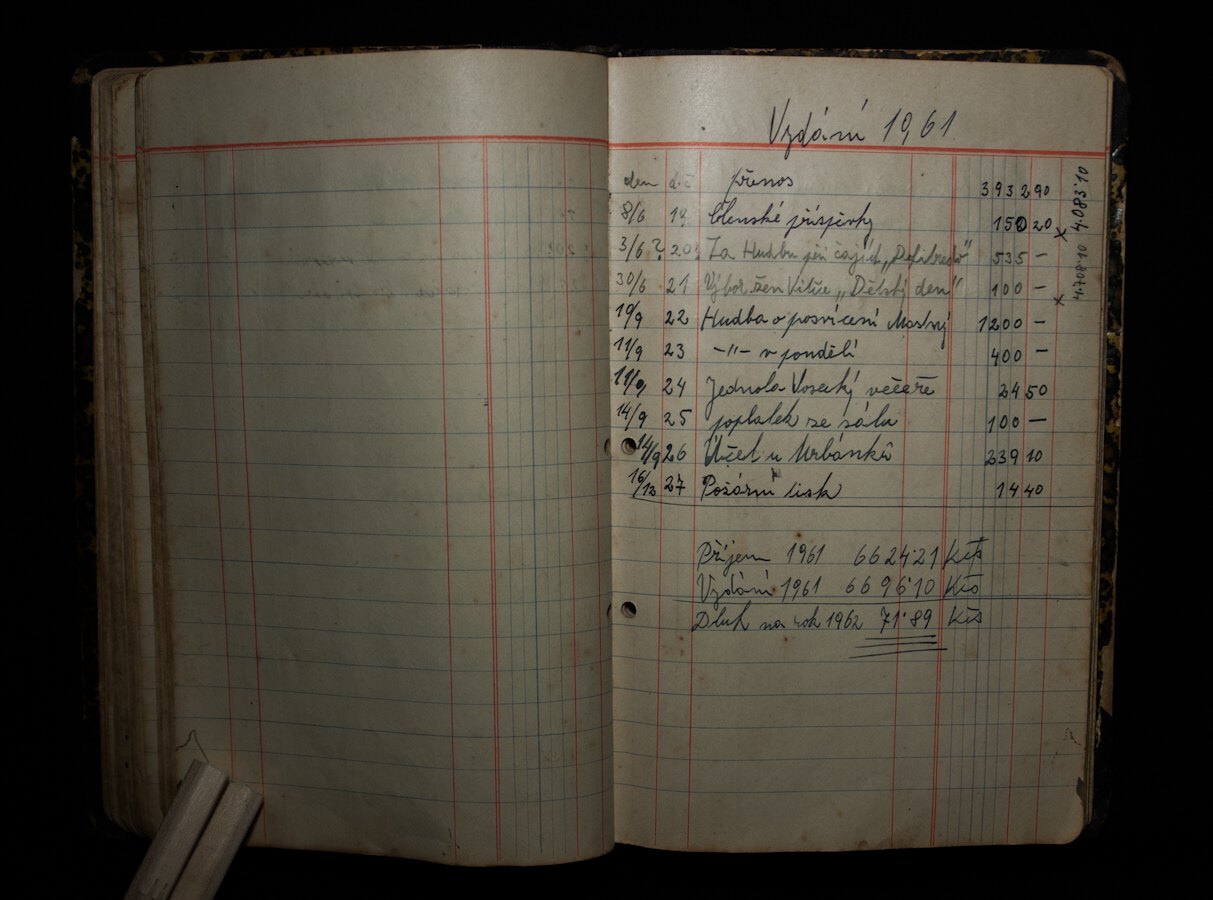 Vydání 1961
den d.č přenos 3932 90
8/6 19 Členské příspěvky 150 20 x 4.083·10
3/6 ? 20 Za Hudbu při čajích „ “ 535 –
30/6 21 Výbor žen Vitice „Dětský den“ 100 – x 4.708·10
10/9 22 Hudba o posvícení Mostný 1200 –
11/9 23 –"– v pondělí 400 –
11/9 24 Jednota Vosecký večeře 24 50
14/9 25 poplatek ze sálu 100 –
14/9 26 Účet u Urbánků 239 10
16/12 27 Požární lisk 14 40
Příjem 1961 6624·21 Kčs
Vydání 1961 6696·10 Kčs
Dluh na rok 1962 71·89 Kčs